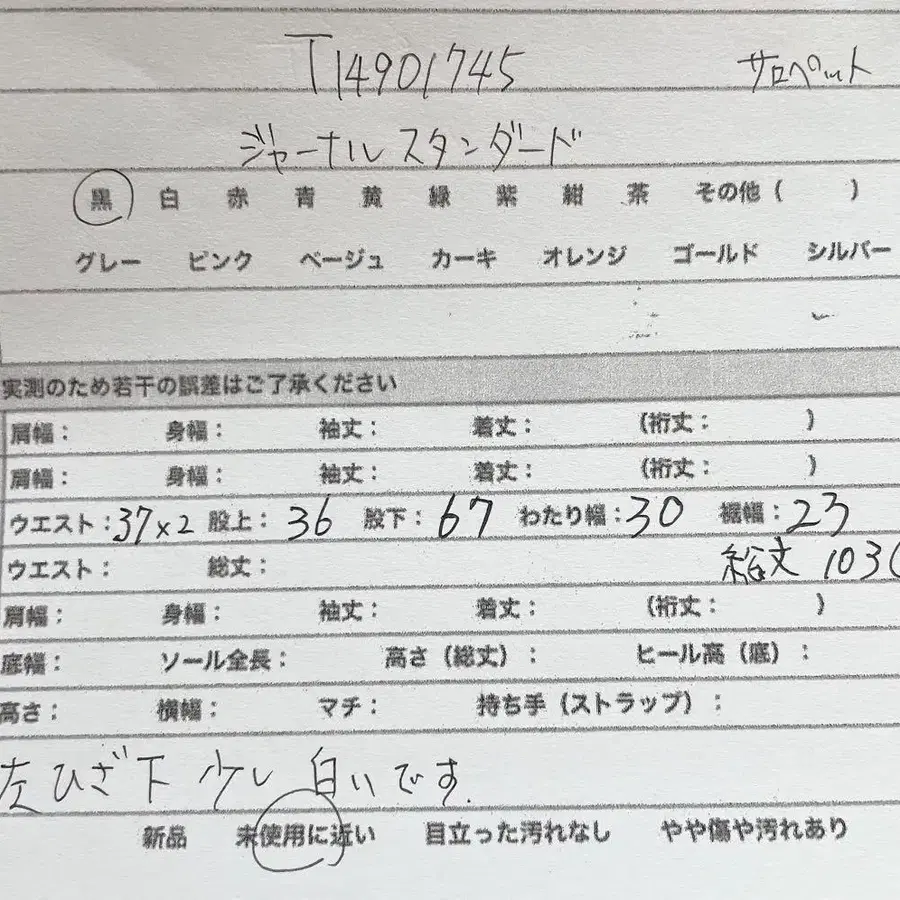 T14901745 サロペット
ジャーナルスタンダード
黒 白 赤 青 黄 緑 紫 紺 茶 その他( )
グレー ピンク ベージュ カーキ オレンジ ゴールド シルバー
実測のため若干の誤差はご了承ください
肩幅: 身幅: 袖丈: 着丈: (裄丈: )
肩幅: 身幅: 袖丈: 着丈: (裄丈: )
ウエスト:37×2 股上:36 股下:67 わたり幅:30 裾幅:23
ウエスト: 総丈: 総丈 103
肩幅: 身幅: 袖丈: 着丈: (裄丈: )
底幅: ソール全長: 高さ(総丈): ヒール高(底):
高さ: 横幅: マチ: 持ち手(ストラップ):
左ひざ下 少し 白いです.
新品 未使用に近い 目立った汚れなし やや傷や汚れあり